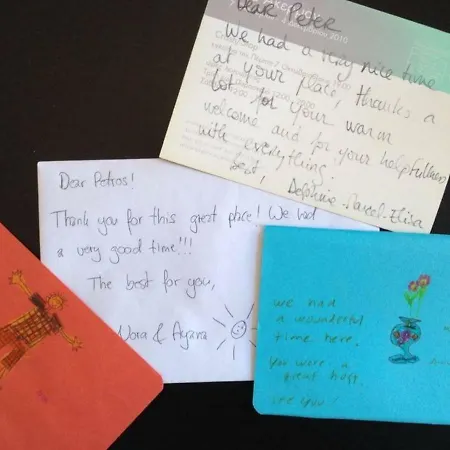 Dear Peter
We had a very nice time
at your place, thanks a
lot for your warm
welcome and for your helpfulness
with everything.
Best,
Delphine-Marcel-Elisa
Dear Petros!
Thank you for this great place! We had
a very good time!!!
The best for you,
Nora & Ayana
we had
a wonderful
time here.
you were a
great host.
see you!